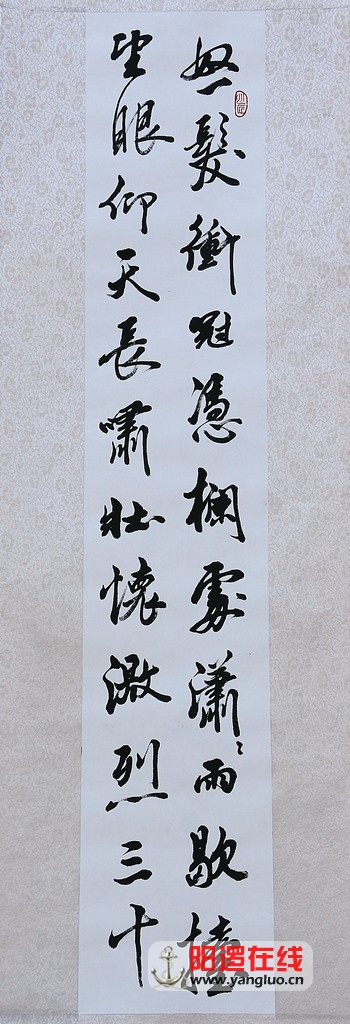 怒髮衝冠憑欄處瀟々雨歇擡
望眼仰天長嘯壯懷激烈三十
阳逻在线
www.yangluo.cn